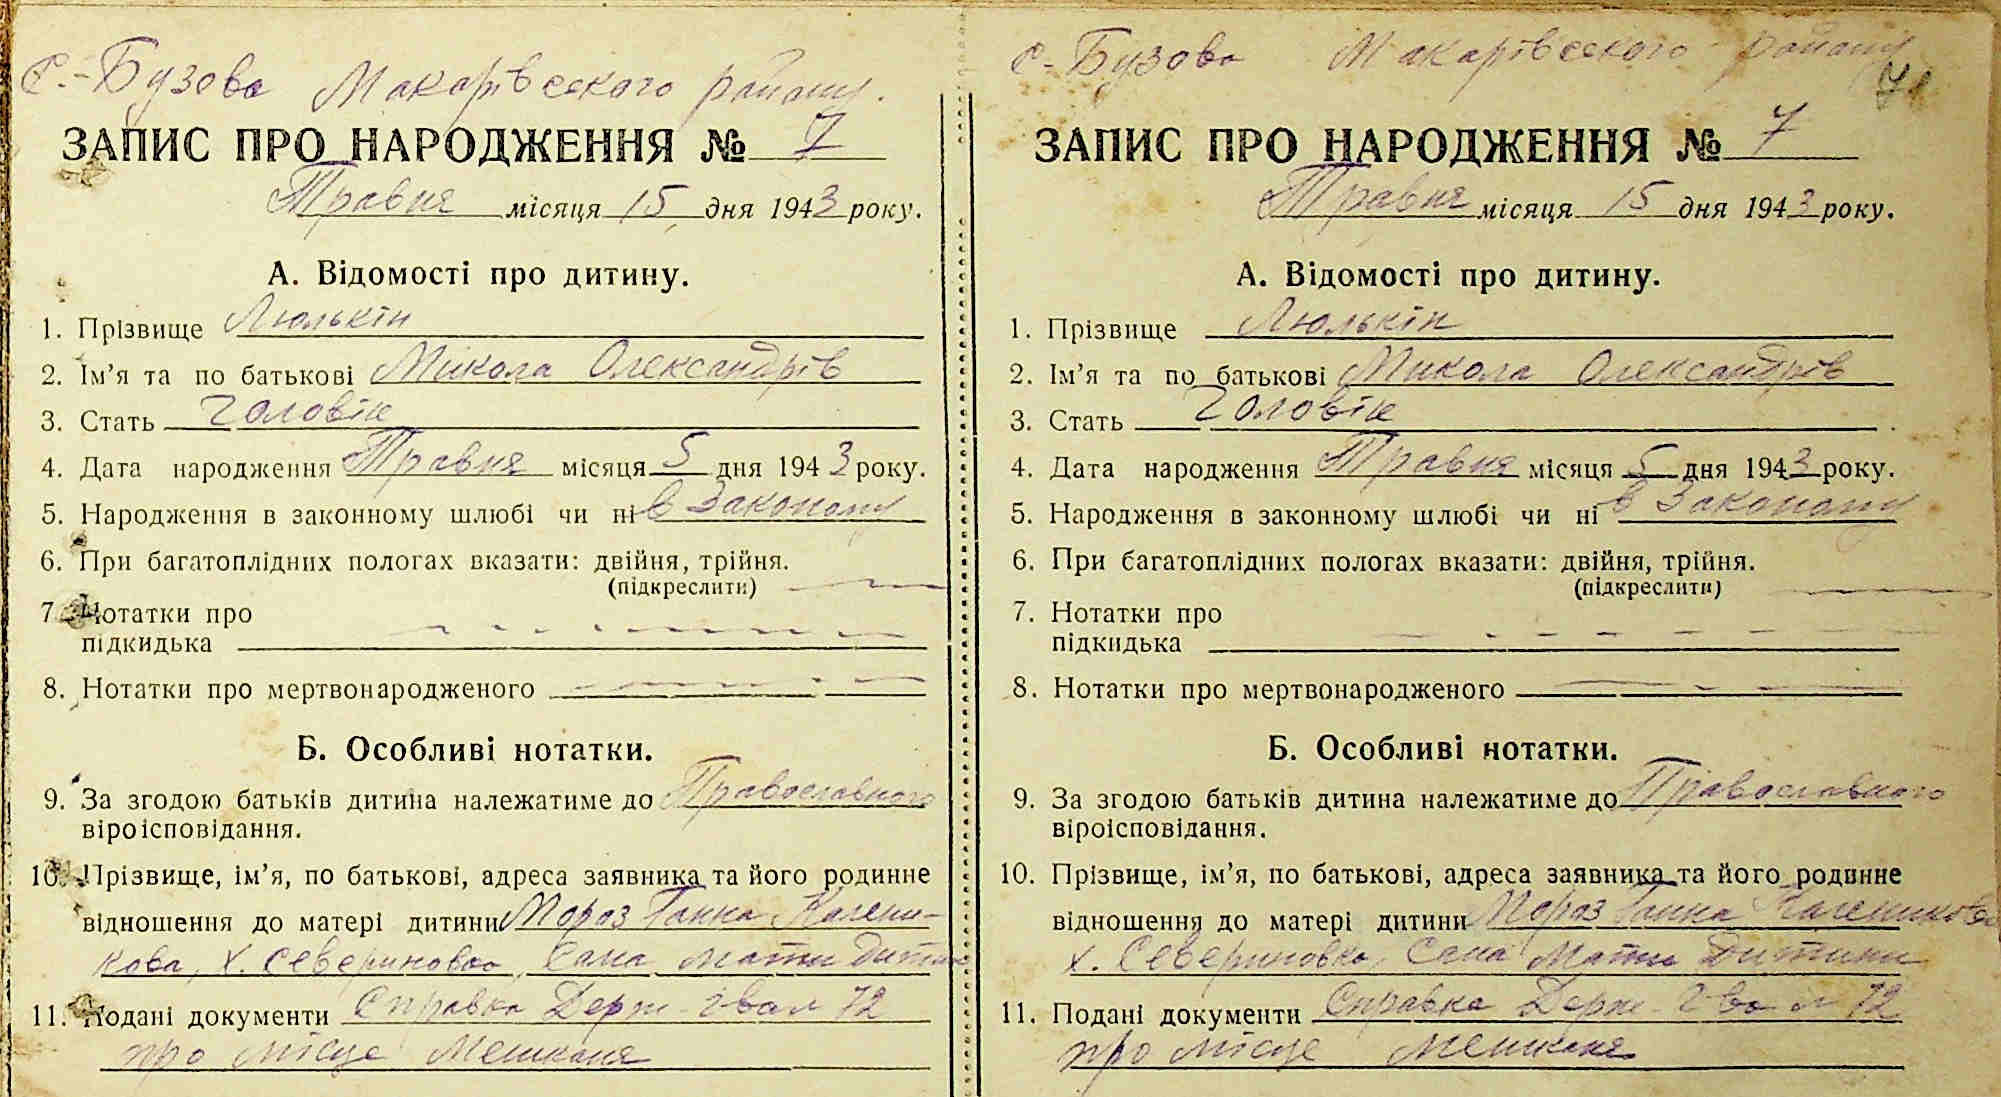 с.-Бузова Макарівського району.
ЗАПИС ПРО НАРОДЖЕННЯ № 7
Травня місяця 15 дня 1943 року.
А. Відомості про дитину.
1. Прізвище Люлькін
2. Ім’я та по батькові Микола Олександрів
3. Стать Чоловік
4. Дата народження Травня місяця 5 дня 1943 року.
5. Народження в законному шлюбі чи ні в законому
6. При багатоплідних пологах вказати: двійня, трійня.
(підкреслити) —
7. Нотатки про
підкидька
8. Нотатки про мертвонародженого
Б. Особливі нотатки.
9. За згодою батьків дитина належатиме до Православного
віроісповідання.
10. Прізвище, ім’я, по батькові, адреса заявника та його родинне
відношення до матері дитини Мороз Ганна
х. Севериновка, сама мати дитини
11. Подані документи Справка Держ. 72
про місце Мешканя
с-Бузова Макарівського району
71
ЗАПИС ПРО НАРОДЖЕННЯ № 7
Травня місяця 15 дня 1943 року.
А. Відомості про дитину.
1. Прізвище Люлькін
2. Ім’я та по батькові Микола Олександрів
3. Стать Чоловік
4. Дата народження Травня місяця 5 дня 1943 року.
5. Народження в законному шлюбі чи ні в законому
6. При багатоплідних пологах вказати: двійня, трійня.
(підкреслити) —
7. Нотатки про
підкидька
8. Нотатки про мертвонародженого
Б. Особливі нотатки.
9. За згодою батьків дитина належатиме до Православного
віроісповідання.
10. Прізвище, ім’я, по батькові, адреса заявника та його родинне
відношення до матері дитини Мороз Ганна
х. Севериновка, сама мати дитини
11. Подані документи Справка Держ. 72
про місце мешканя